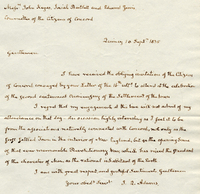 Messrs John Keyes, Josiah Bartlett and Edward Jarvis
Committee of the Citizens of Concord.
Quincy 10 Septr 1835
Gentlemen
I have received the obliging invitation of the Citizens
of Concord conveyed by your Letter of the to attend at the celebration
of the second centennial Anniversary of the Settlement of the town.
I regret that my engagements at the time will not admit of my
attendance on that day. An occasion highly interesting as I feel it to be
from the associations naturally connected with Concord, not only as the
first Settled Town in the interior of New England, but as the opening scene
of that ever memorable Revolutionary War, which has raised the standard
of the character of man, as the national inhabitant of the Earth.
I am with great respect and grateful Sentiments Gentlemen
Your obedt Servt J. Q. Adams